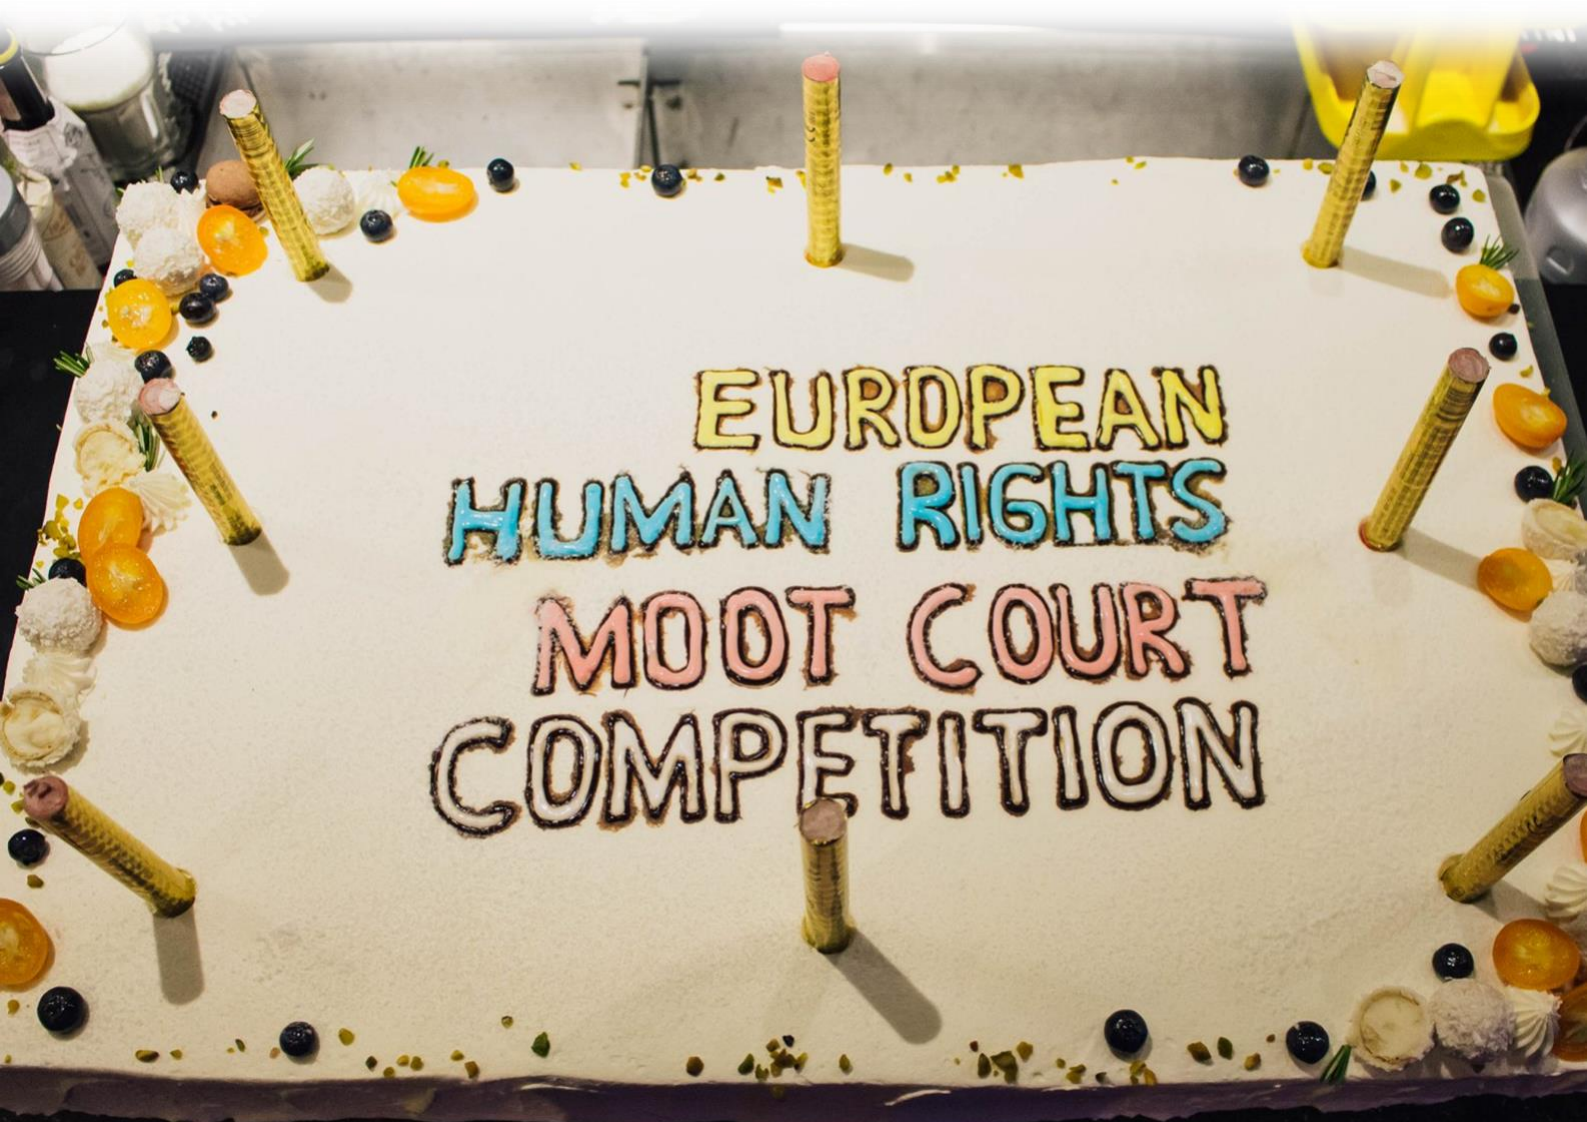 EUROPEAN
HUMAN RIGHTS
MOOT COURT
COMPETITION